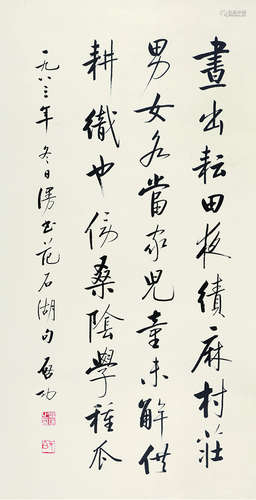 晝出耘田夜績麻村莊
男女各當家兒童未解供
耕織也傍桑陰學種瓜
一九八三年 冬日漫书范石湖句 啟功